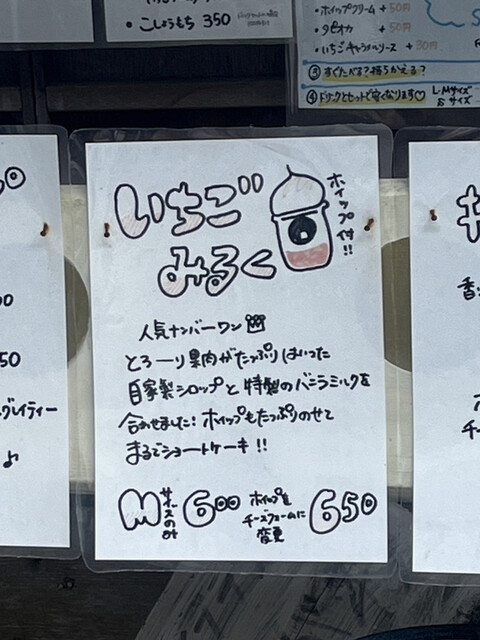 ・こしょうもち 350
・ホイップクリーム + 50円
・タピオカ + 50円
・いちごキャラメルソース + 30円
③すぐたべる？持ちかえる？
④ドリンクとセットで安くなります♡
L・Mサイズ
Sサイズ
いちご
みるく
ホイップ付!!
人気ナンバーワン
とろーり果肉がたっぷりはいった
自家製シロップと特製のバニラミルクを
合わせました! ホイップもたっぷりのせて
まるでショートケーキ!!
M サイズのみ 600 ホイップを
チーズフォームに
変更 650
50
グレイティー
♪
香
チー